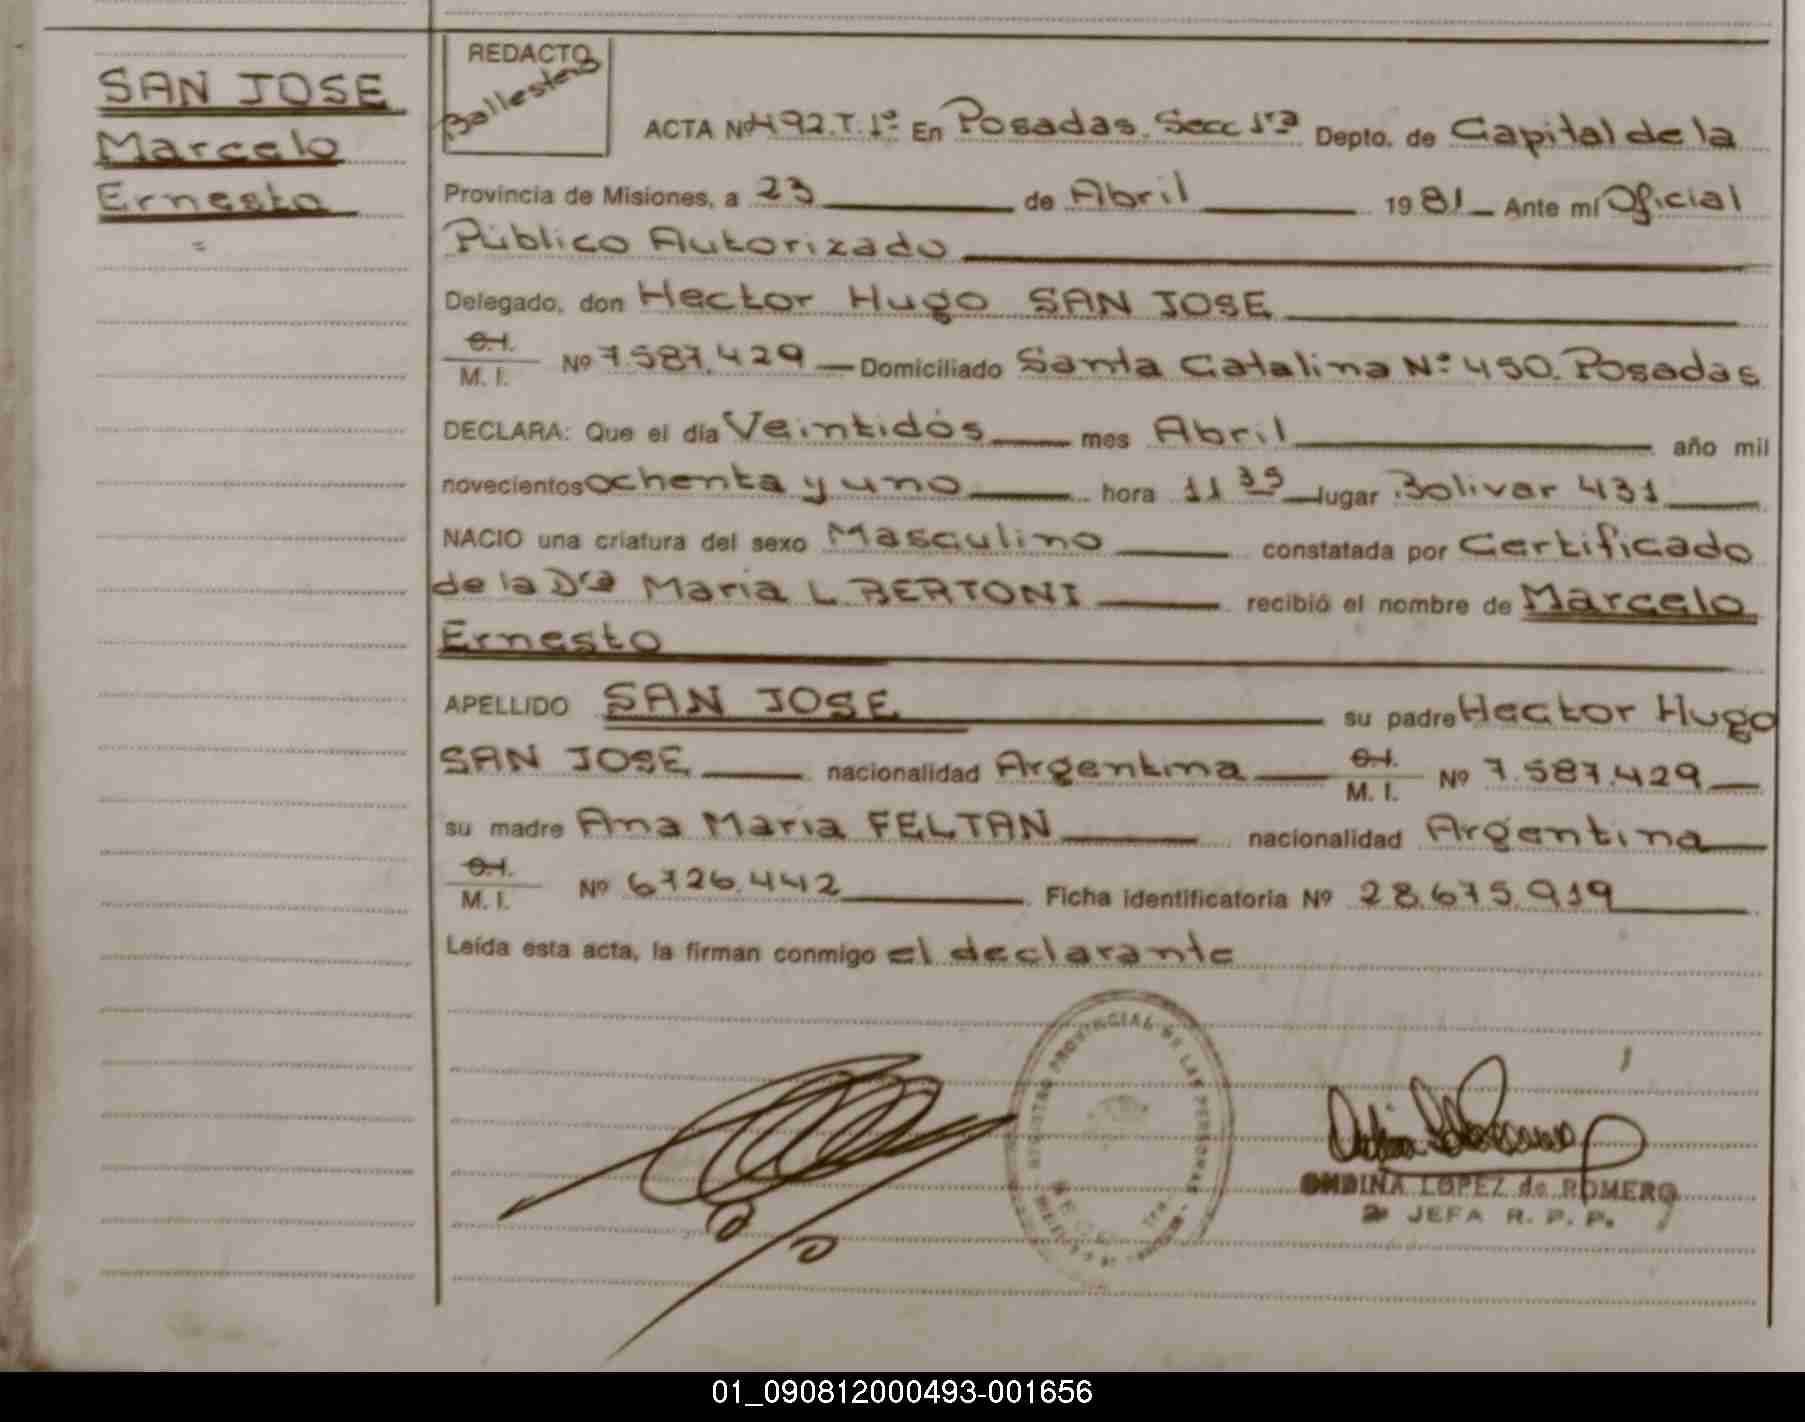 SAN JOSE
Marcelo
Ernesto
REDACTO
Ballesteros
ACTA Nº 492.T.1º En Posadas. Secc 1ra Depto. de Capital de la
Provincia de Misiones, a 23 de Abril 1981 Ante mí Oficial
Público Autorizado
Delegado, don Hector Hugo SAN JOSE
C.I.
M. I. Nº 7.587.429 Domiciliado Santa Catalina Nº 450. Posadas
DECLARA: Que el día Veintidós mes Abril año mil
novecientos ochenta y uno hora 11 35 lugar Bolivar 431
NACIO una criatura del sexo Masculino constatada por Certificado
de la Dra Maria L. BERTONI recibió el nombre de Marcelo
Ernesto
APELLIDO SAN JOSE su padre Hector Hugo
SAN JOSE nacionalidad Argentina C.I. M. I. Nº 7.587.429
su madre Ana Maria FELTAN nacionalidad Argentina
C.I.
M. I. Nº 6726.442 Ficha identificatoria Nº 28.675.919
Leída esta acta, la firman conmigo el declarante
REGISTRO PROVINCIAL DE LAS PERSONAS
ONDINA LOPEZ de ROMERO
2º JEFA R. P. P.
01_090812000493-001656